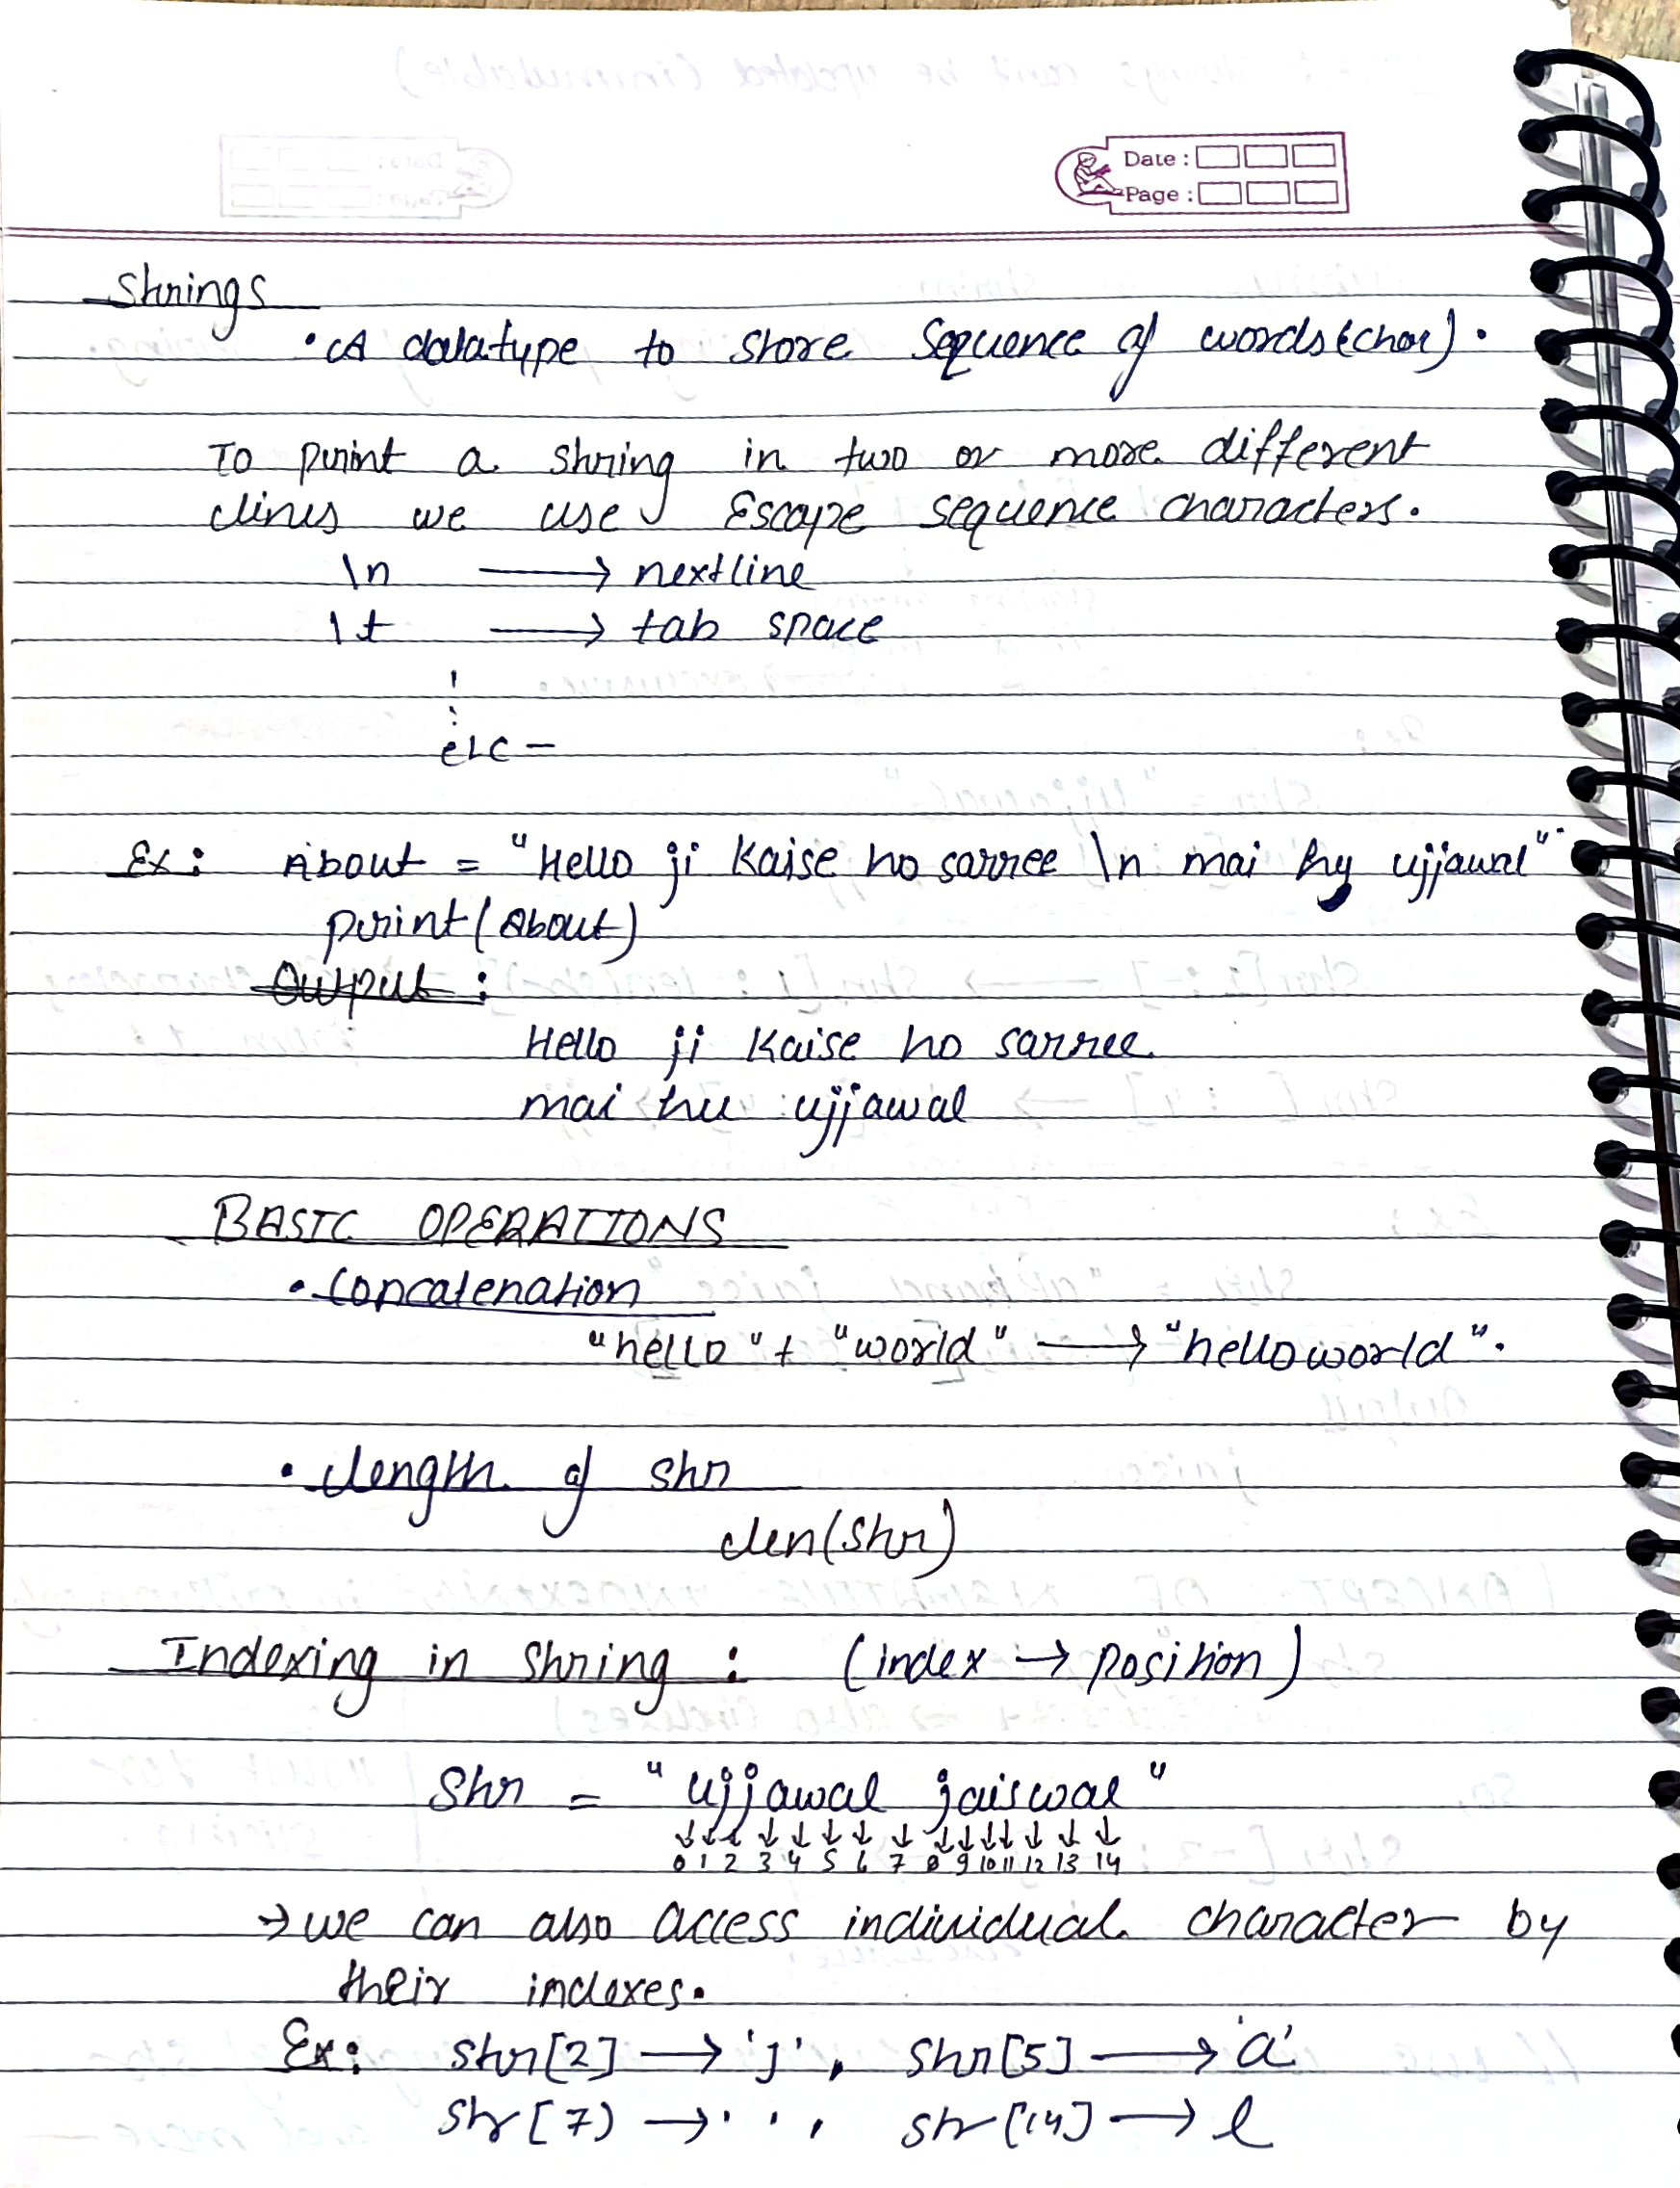 Date :
Page :
Strings
• A datatype to store sequence of words(char).
To print a string in two or more different
lines we use Escape sequence characters.
\n → nextline
\t → tab space
etc -
Ex: About = "Hello ji Kaise ho sarree \n mai hu ujjawal"
print(About)
Output :
Hello ji Kaise ho sarree
mai hu ujjawal
BASIC OPERATIONS
• Concatenation
"hello" + "world" → "helloworld".
• length of str
len(str)
Indexing in string : (index → position)
Str = "ujjawal jaiswal"
↓ ↓ ↓ ↓ ↓ ↓ ↓ ↓ ↓ ↓ ↓ ↓ ↓ ↓ ↓
0 1 2 3 4 5 6 7 8 9 10 11 12 13 14
→ we can also access individual character by
their indexes.
Ex: str[2] → 'j', str[5] → 'a'
str[7) → ' ', str[14] → l